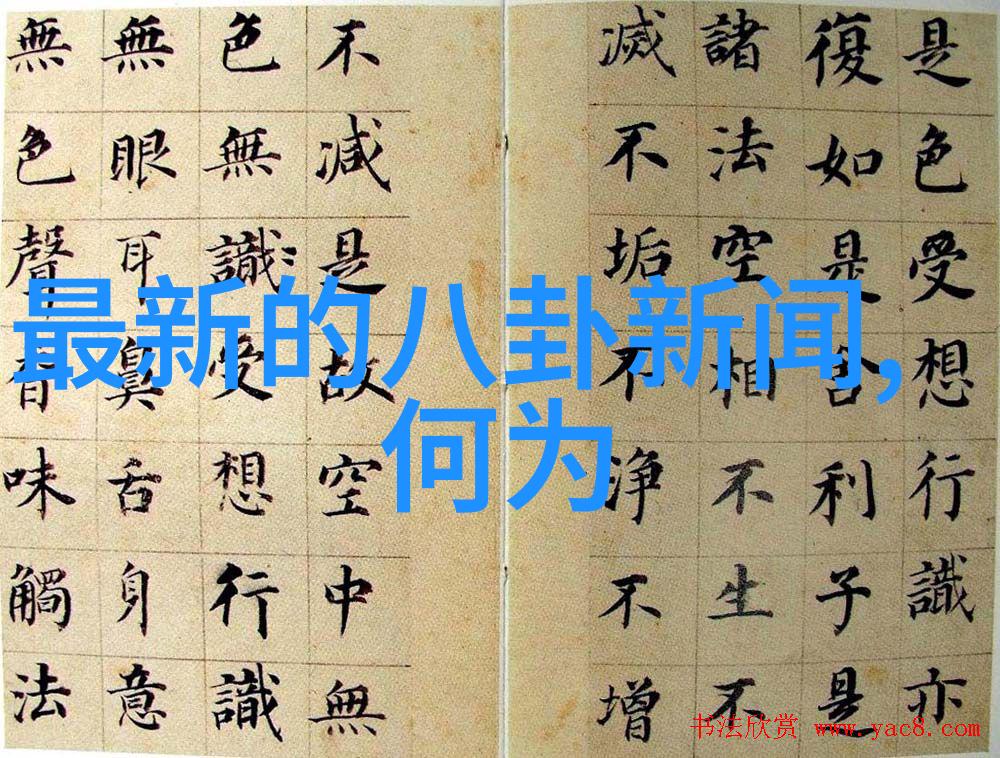 最新的八卦新闻,
何为
是色受想行識亦
復如是舍利子是
諸法空相不生不
滅不垢不淨不增
不減是故空中無
色無識受想行識
無眼耳鼻舌身意
無色聲香味觸法
书法欣赏 www.yac8.com